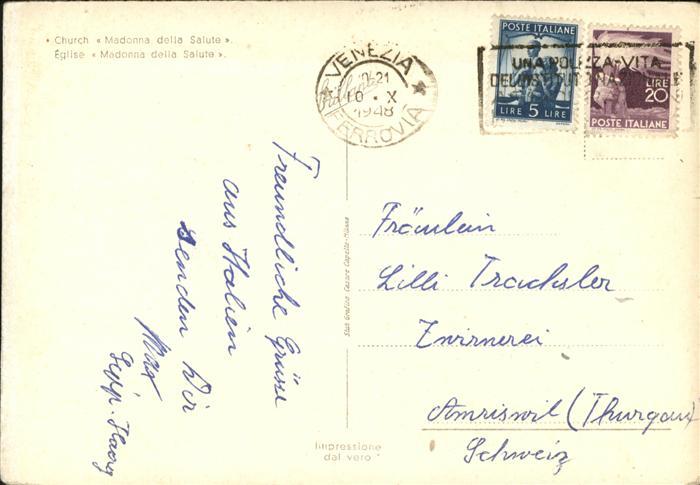 • Church « Madonna della Salute ».
Église « Madonna della Salute ».
VENEZIA
10-21
10 · X
1948
FERROVIA
POSTE ITALIANE
LIRE 5 LIRE
LIRE
20
POSTE ITALIANE
UNA POLIZZA-VITA
Freundliche Grüsse
aus Italien
senden Dir
Max
Sepp
Fräulein
Lilli Trachsler
Zwirnerei
Amriswil (Thurgau)
Schweiz
Stab. Grafico Cesare Capello - Milano
Impressione
dal vero